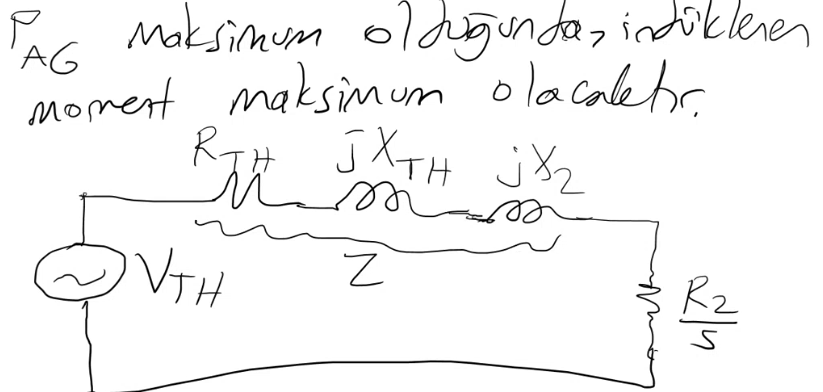 P_AG Maksimum olduğunda, indüklenen
moment maksimum olacaktır.
R_TH jX_TH jX_2
V_TH Z R_2/s